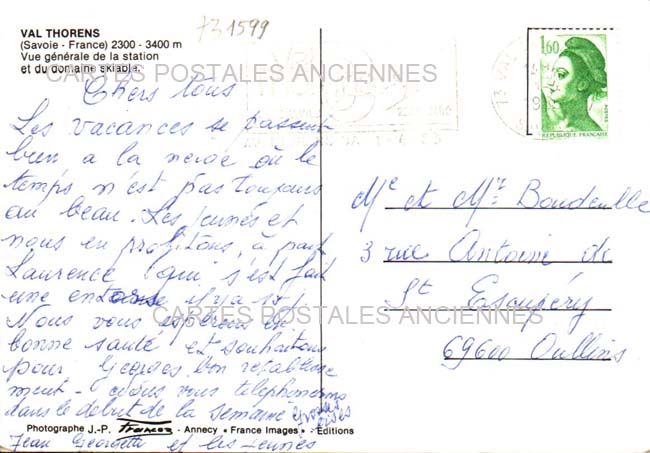 73 1599
VAL THORENS
(Savoie - France) 2300 - 3400 m
Vue générale de la station
et du domaine skiable.
CARTES POSTALES ANCIENNES
1,60
POSTES
REPUBLIQUE FRANÇAISE
Chers tous
Les vacances se passent
bien a la neige où le
temps n'est pas toujours
au beau. Les jeunes et
nous en profitons, à part
Laurence qui s'est fait
une entorse il y a
Nous vous espérons en
bonne santé et souhaitons
pour Georges bon
ment - vous téléphonerons
dans le début de la semaine Grosses
bises
Jean Georgette et les jeunes
Me et Mr Boudeulle
3 rue Antoine de
St Exupéry
69600 Oullins
CARTES POSTALES ANCIENNES
Photographe J.-P. Francoz - Annecy « France Images » - Editions